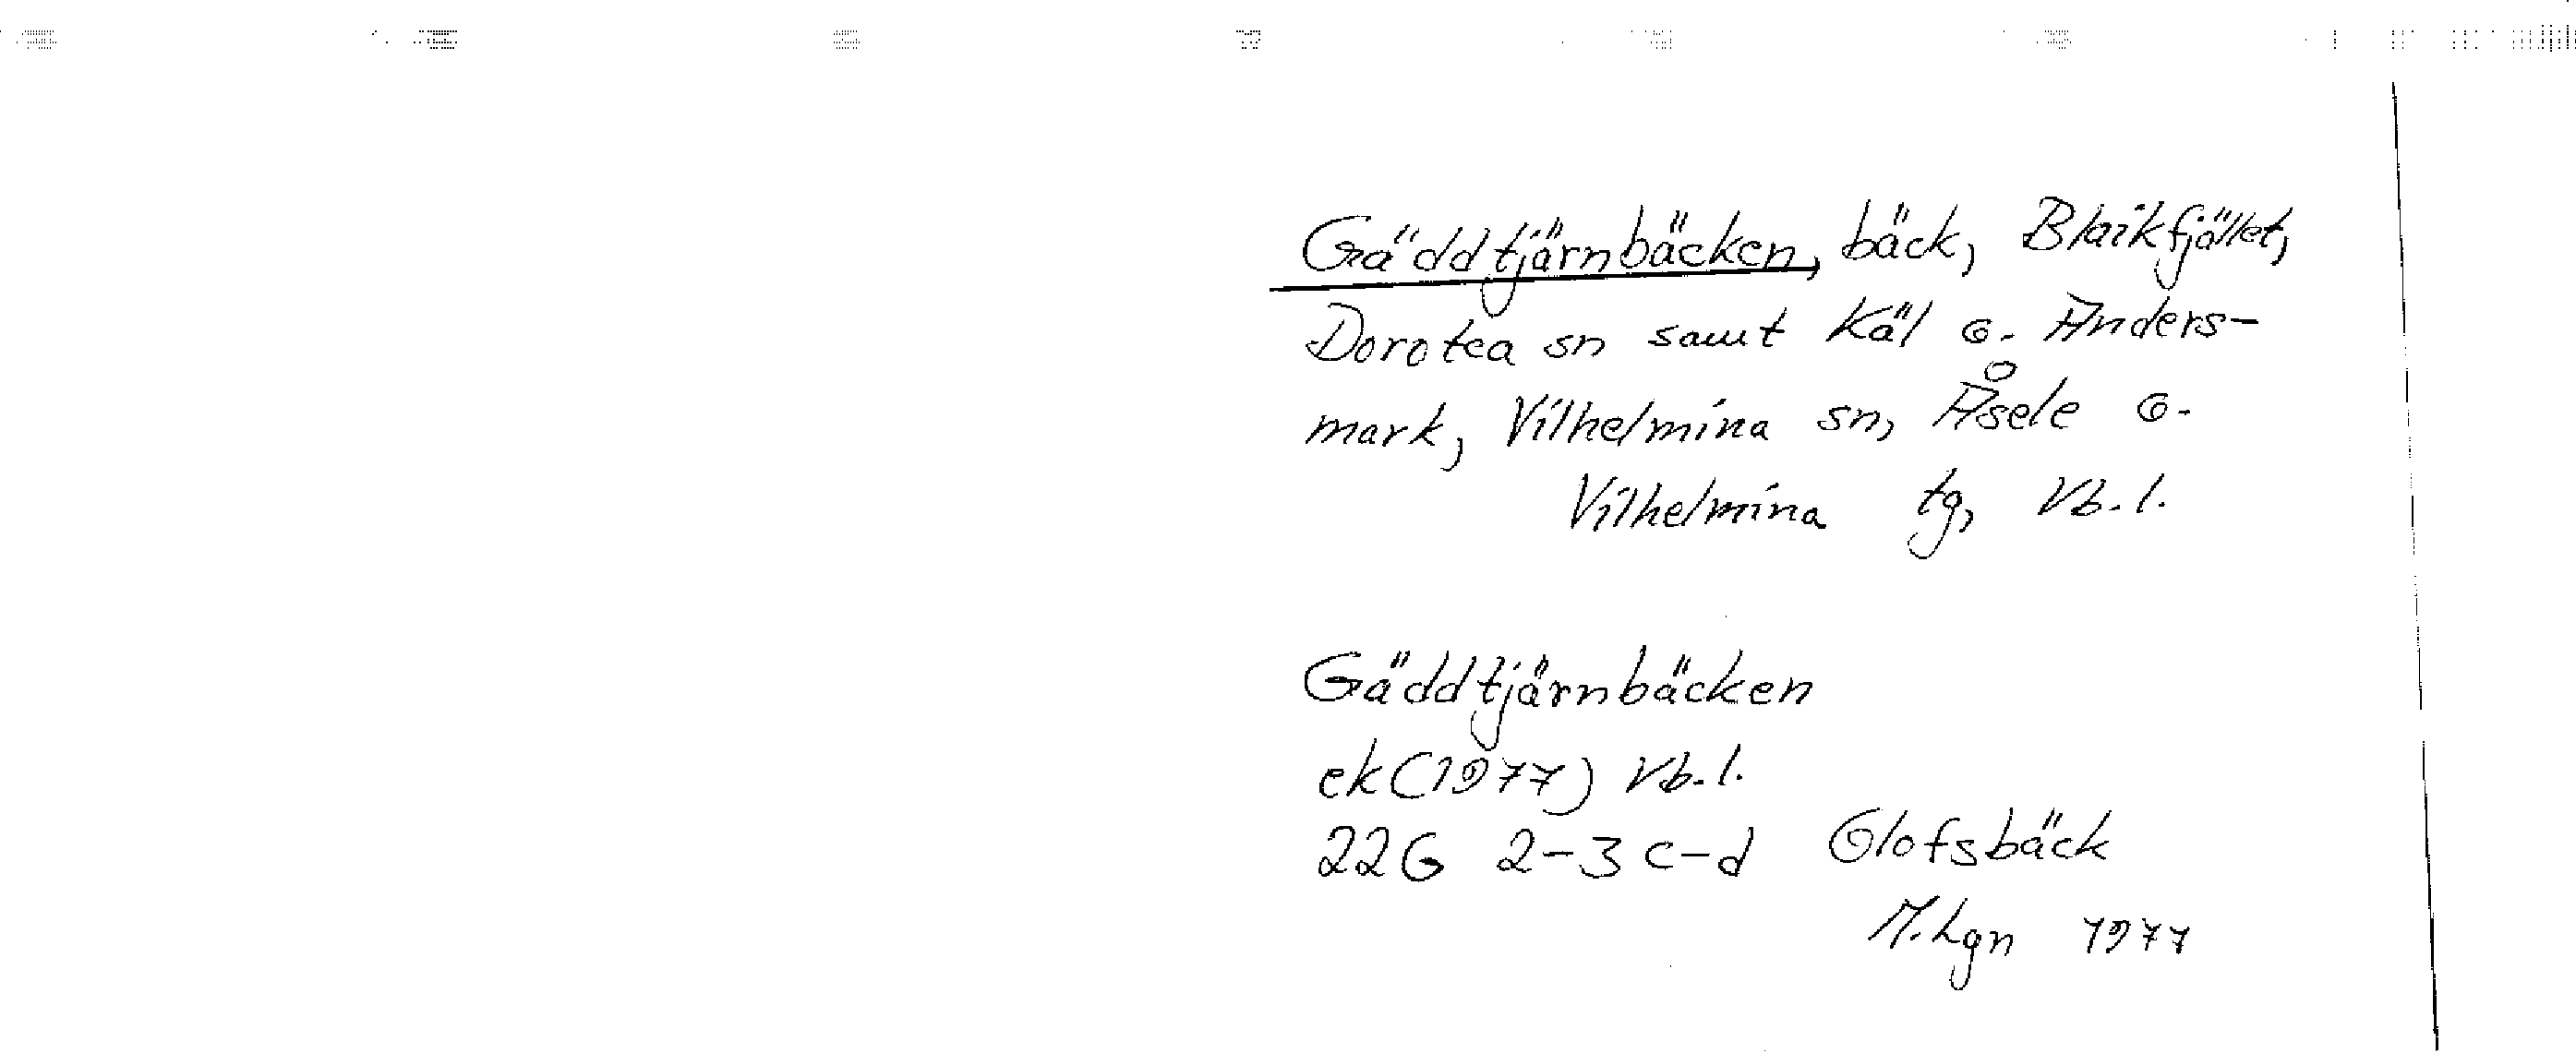 Gäddtjärnbäcken, bäck, Blaikfjället,
Dorotea sn samt Käl o. Anders-
mark, Vilhelmina sn, Åsele o.
Vilhelmina tg, Vb. l.
Gäddtjärnbäcken
ek (1977) Vb. l.
22G 2-3 c-d Olofsbäck
M. Lgn 1977